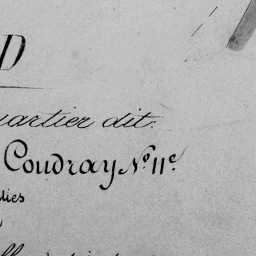 D
uartier dit.
Coudray N.º 11.e
lies